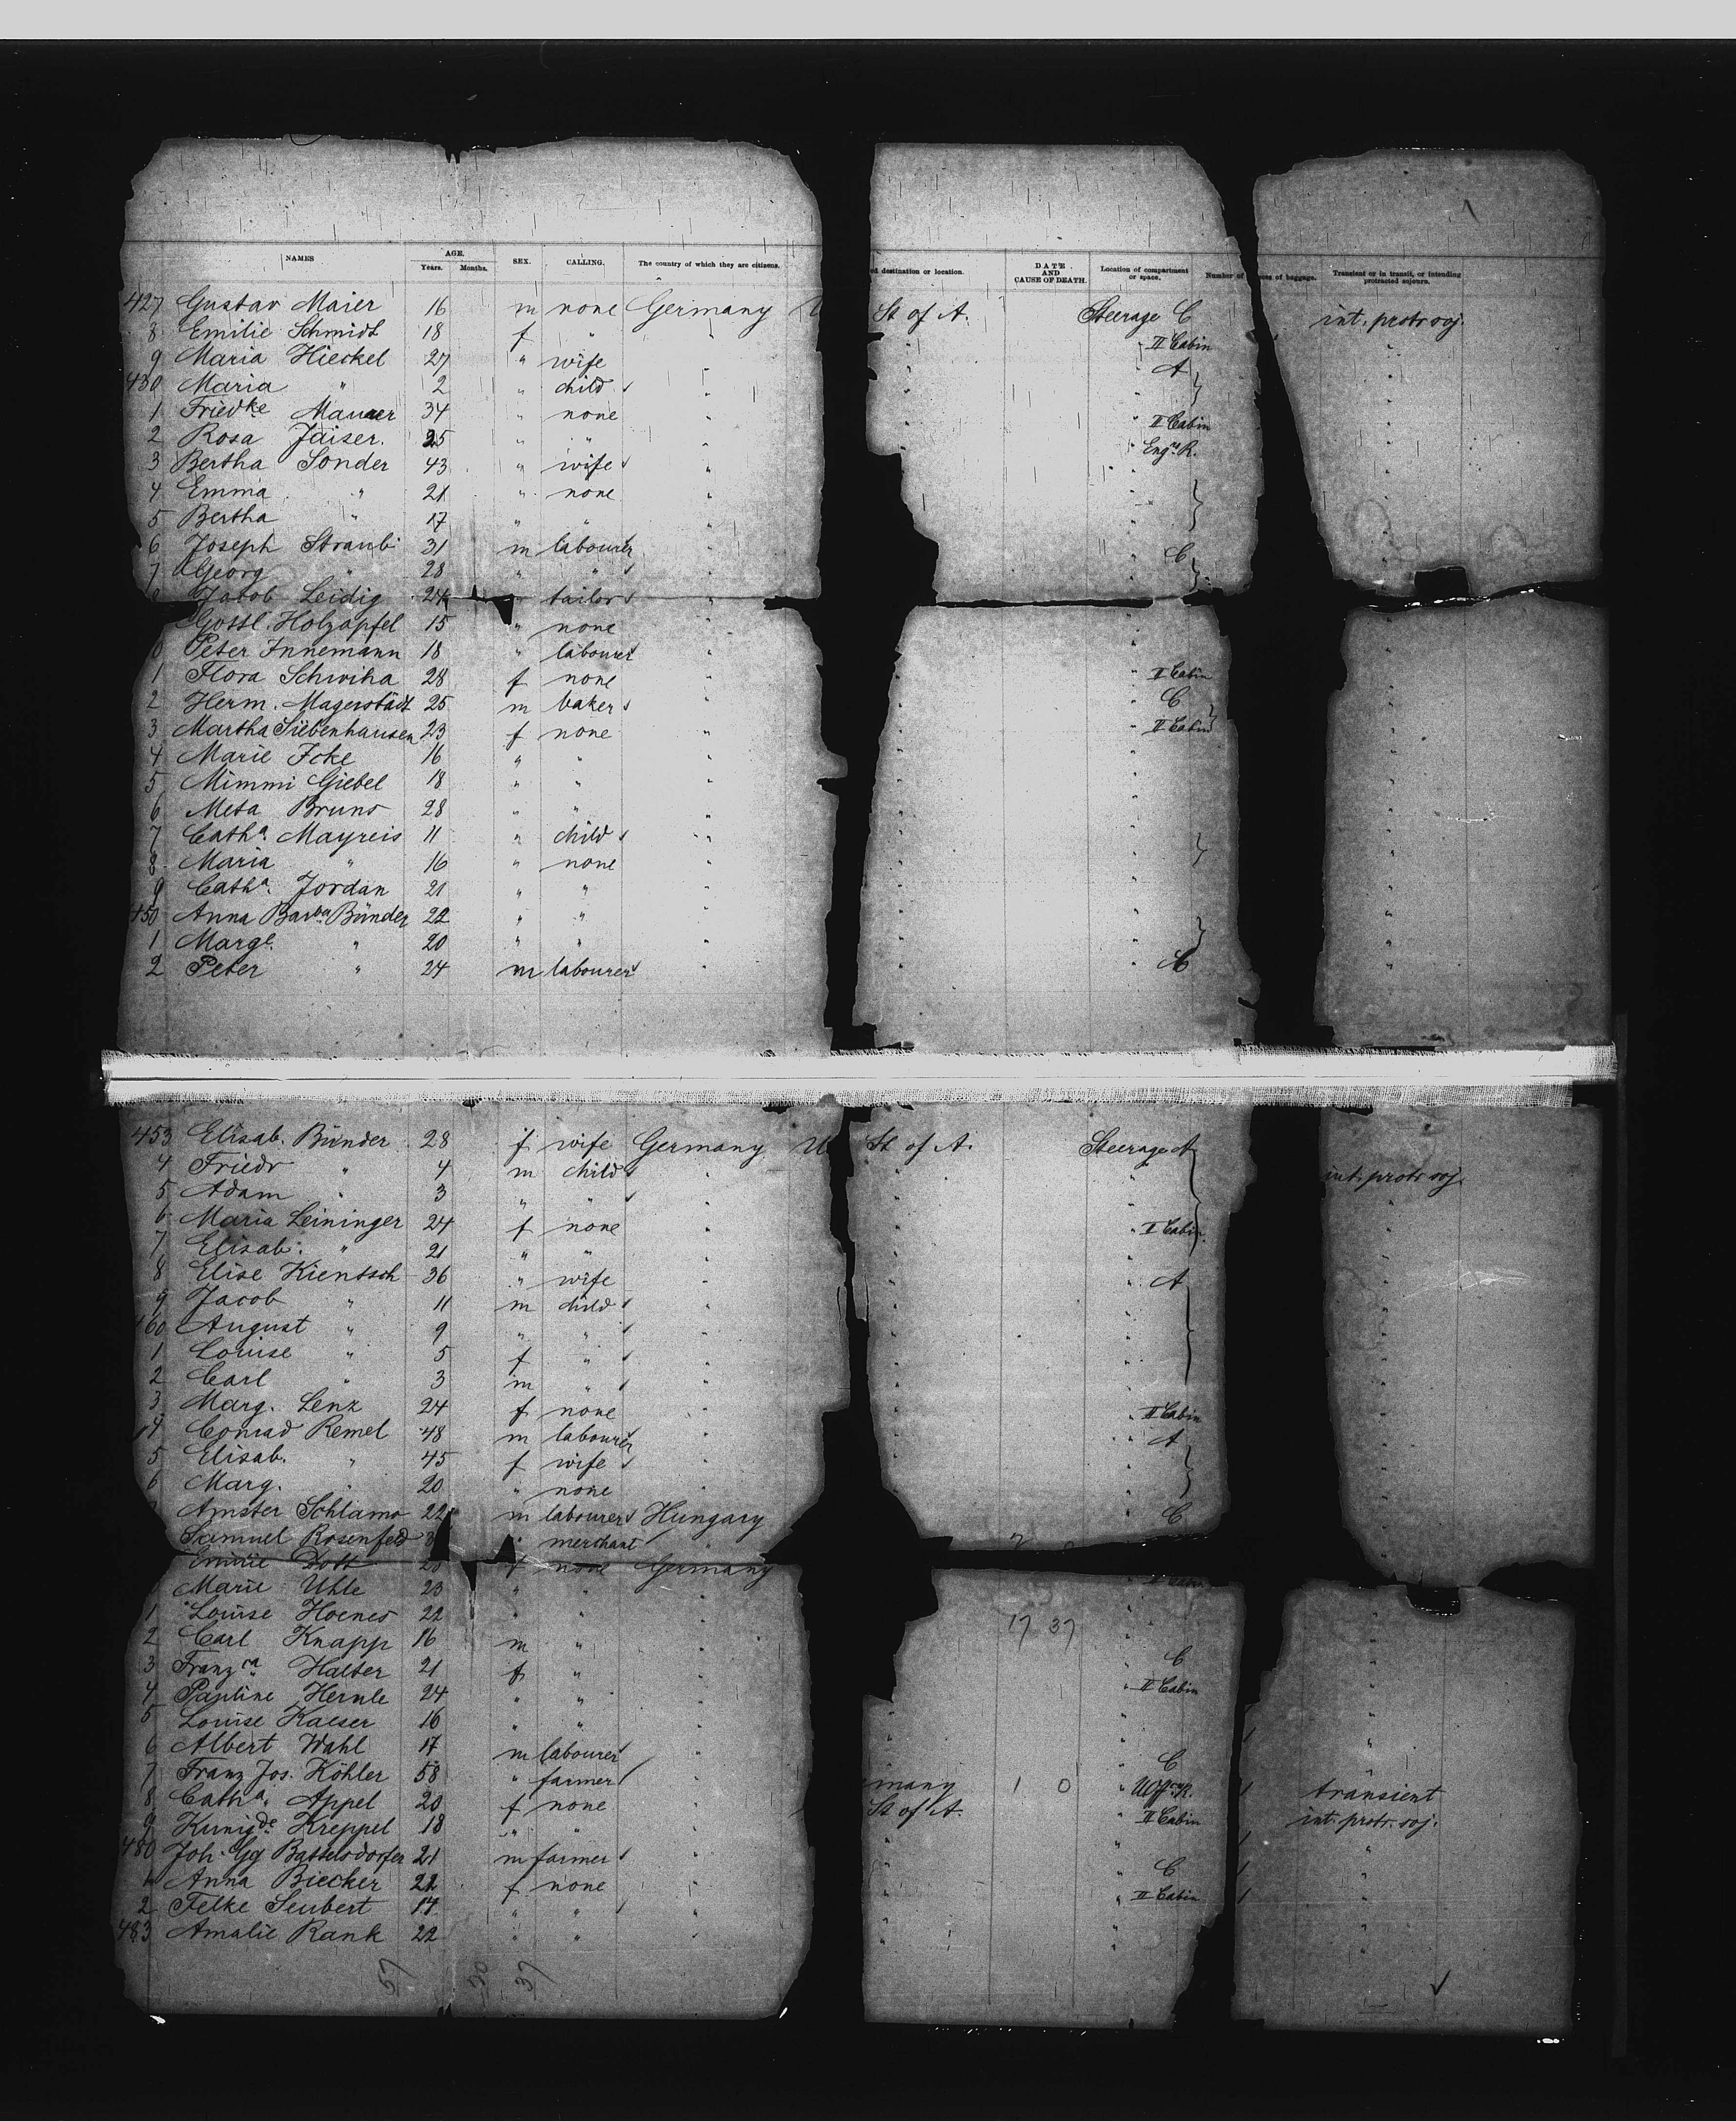 NAMES AGE. Years. Months. SEX. CALLING. The country of which they are citizens. ed destination or location. DATE AND CAUSE OF DEATH. Location of compartment or space. Number of ces of baggage. Transient or in transit, or intending protracted sojourn.
427 Gustav Maier 16 m none Germany U St of A. Steerage C int. protr soj.
8 Emilie Schmidt 18 f " " " " II Cabin "
9 Maria Hieckel 27 " wife " " " A "
430 Maria " 2 " child " " " "
1 Friedke Maurer 34 " none " " " II Cabin "
2 Rosa Jaiser. 25 " " " " Engs R. "
3 Bertha Sonder 43 " wife " " "
4 Emma " 21 " none " " "
5 Bertha " 17 " " " " "
6 Joseph Straub 31 m labourer " " C "
7 Georg " 28 " " " " "
Jacob Leidig 24 " tailor "
Gottl. Holzapfel 15 " none " " "
0 Peter Innemann 18 " labourer " " "
1 Flora Schwiha 28 f none " " " II Cabin "
2 Herm. Magerstädt 25 m baker " " " C "
3 Martha Siebenhausen 23 f none " " " II Cabin "
4 Marie Icke 16 " " " " " "
5 Mimmi Giebel 18 " " " " " "
6 Meta Bruns 28 " " " " " "
7 Catha. Mayreis 11 " child " " " "
8 Maria " 16 " none " " " "
9 Catha. Jordan 21 " " " " " "
450 Anna Barba Bünder 22 " " " " " "
1 Margt. " 20 " " " " " "
2 Peter " 24 m labourer " " " "
453 Elisab. Bünder 28 f wife Germany U St of A. Steerage A
4 Friedr " 4 m child " " " int. protr soj.
5 Adam " 3 " " " " " "
6 Maria Leininger 24 f none " " " II Cabin "
7 Elisab. " 21 " " " " " "
8 Elise Kientsch 36 " wife " " " A "
9 Jacob " 11 m child " " " "
460 August " 9 " " " " " "
1 Louise " 5 f " " " " "
2 Carl " 3 m " " " " "
3 Marg. Lenz 24 f none " " " II Cabin "
4 Conrad Remel 48 m labourer " " " A "
5 Elisab. " 45 f wife " " " "
6 Marg. " 20 " none " " "
Amster Schlamo 22 m labourer Hungary " C "
Samuel Rosenfeld " merchant "
Emilie Dott 28 f none Germany
Marie Uhle 23 " " " " "
1 Louise Hoenes 22 " " " 17 37 " "
2 Carl Knapp 16 m " " " C "
3 Franzca Halter 21 f " " " II Cabin "
4 Pauline Hernle 24 " " " " "
5 Louise Kaeser 16 " " " " " "
6 Albert Wahl 17 m labourer " " " C "
7 Franz Jos. Köhler 58 " farmer " many 1 0 " 1 transient
8 Catha. Appel 20 f none " St of A. " II Cabin int. protr. soj.
9 Kunigde Kreppel 18 " " " " " "
480 Joh. Gg Battelsdorfer 21 m farmer " " " C 1 "
1 Anna Biecker 22 f none " " " II Cabin 1 "
2 Felke Seubert 17 " " " " " "
483 Amalie Rank 22 " " " " " "
57 20 37